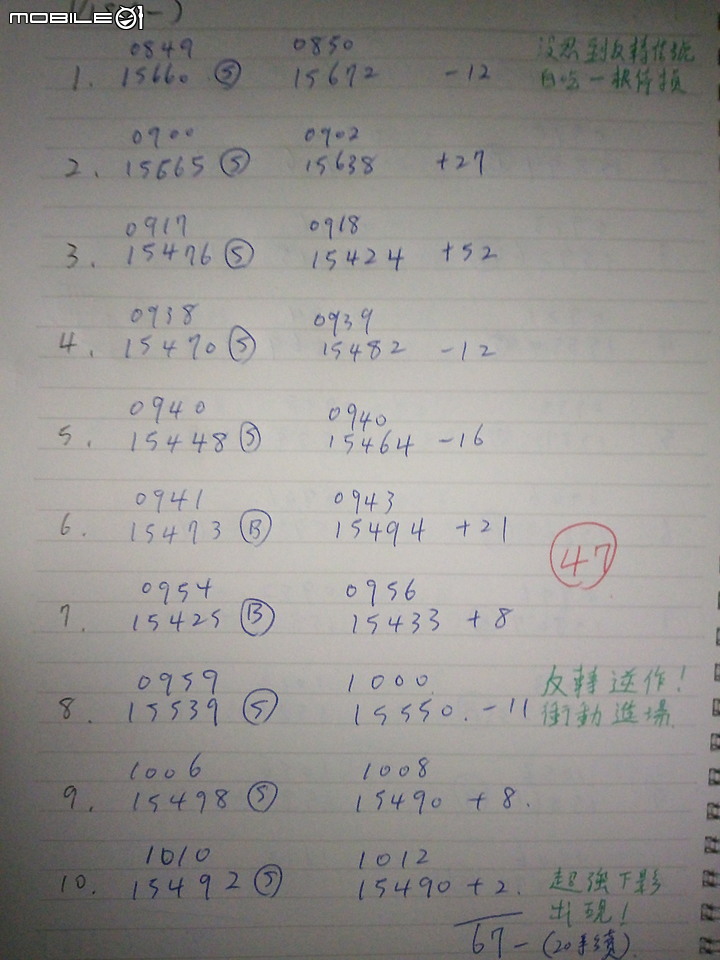 MOBILE01
0849 0850 沒照到反轉信號
1. 15660 Ⓢ 15672 -12 白吃一根停損
0900 0902
2. 15665 Ⓢ 15638 +27
0917 0918
3. 15476 Ⓢ 15424 +52
0938 0939
4. 15470 Ⓢ 15482 -12
0940 0940
5. 15448 Ⓢ 15464 -16
0941 0943
6. 15473 Ⓑ 15494 +21
47
0954 0956
7. 15425 Ⓑ 15433 +8
0959 1000 反轉逆作!
8. 15539 Ⓢ 15550. -11 衝動進場
1006 1008
9. 15498 Ⓢ 15490 +8.
1010 1012 超強下影
10. 15492 Ⓢ 15490 +2. 出現!
67 - (20手續)